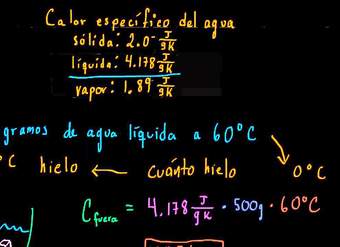 Calor específico del agua
sólida: 2.0 J/gK
líquida: 4.178 J/gK
vapor: 1.89 J/gK
gramos de agua líquida a 60°C
°C hielo ← cuánto hielo 0°C
C fuera = 4.178 J/gK · 500g · 60°C